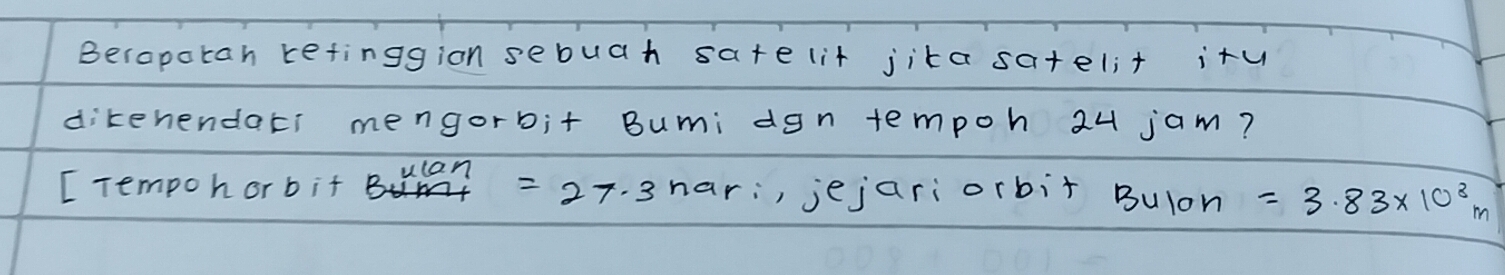 Berapakah ketinggian sebuah satelit jika satelit itu
dikehendaki mengorbit Bumi dgn tempoh 24 jam?
[Tempoh orbit Bulan = 27.3 hari, jejari orbit Bulan = 3.83 × 10⁸ m